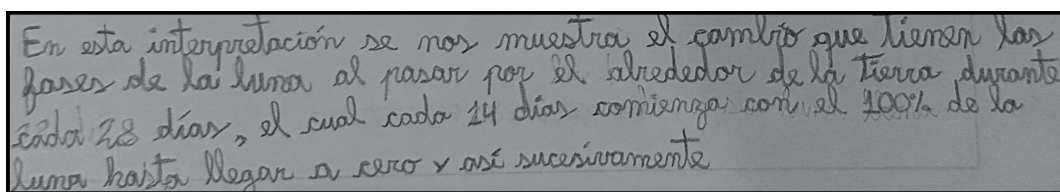 En esta interpretación se nos muestra el cambio que tienen las
fases de la luna al pasar por el alrededor de la tierra durante
cada 28 días, el cual cada 14 días comienza con el 100% de la
luna hasta llegar a cero y así sucesivamente